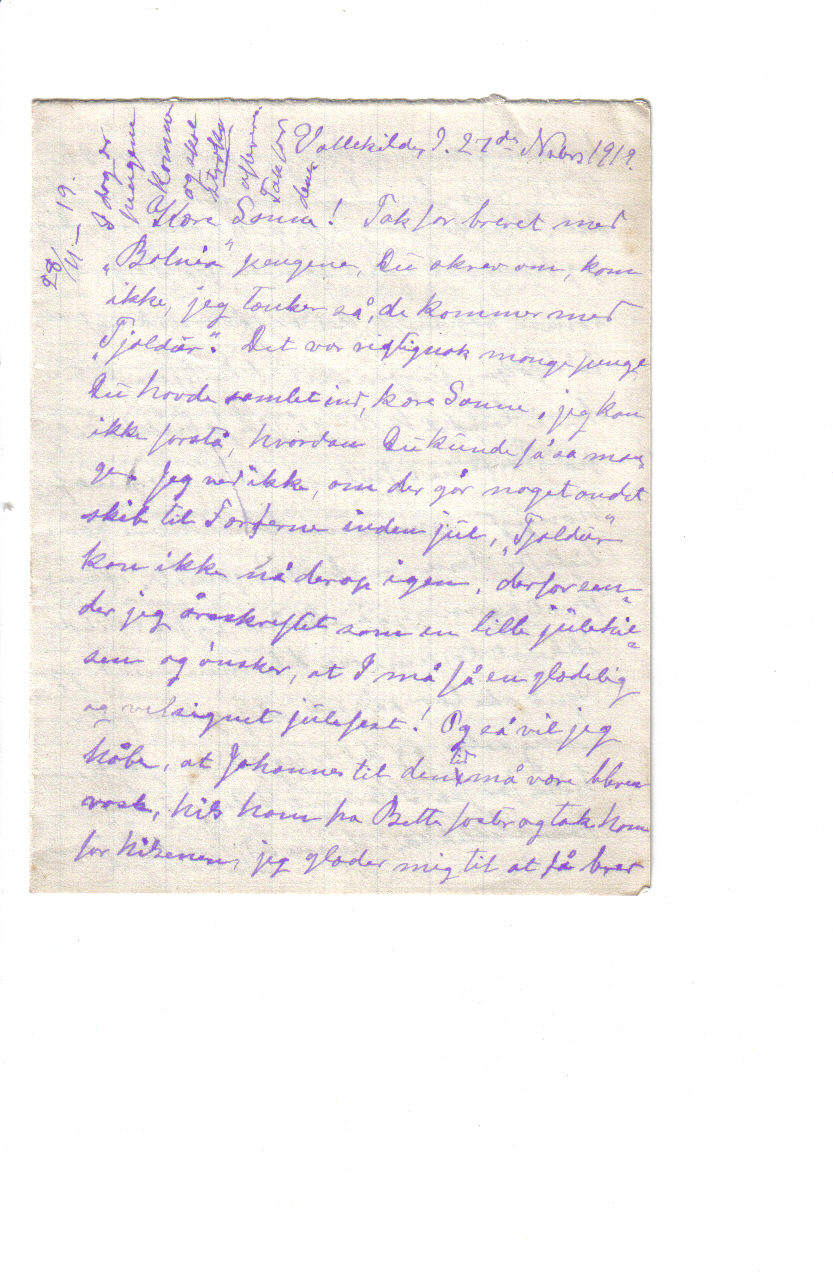 Vallekilde, D. 27de Novbr 1919.
28/11 – 19.
I dag er
pengene
komne
og skal
straks
Tak for
dem
Kære Sanne! Tak for brevet med
„Botnia" pengene, Du skrev om, kom
ikke, jeg tænker så, de kommer med
„Tjaldur". Det var rigtignok mange penge
Du havde samlet ind, kære Sanne, jeg kan
ikke forstå, hvordan Du kunde få så man
ge. Jeg ved ikke, om der går noget andet
skib til Færøerne inden jul, „Tjaldur"
kan ikke nå derop igen, derfor sen-
der jeg årsskriftet som en lille julehil-
sen og ønsker, at I må få en glædelig
og velsignet julefest! Og så vil jeg
håbe, at Johannes til den tid må være bleven
rask, hils ham fra Bette foster og tak ham
for hilsenen, jeg glæder mig til at få brev